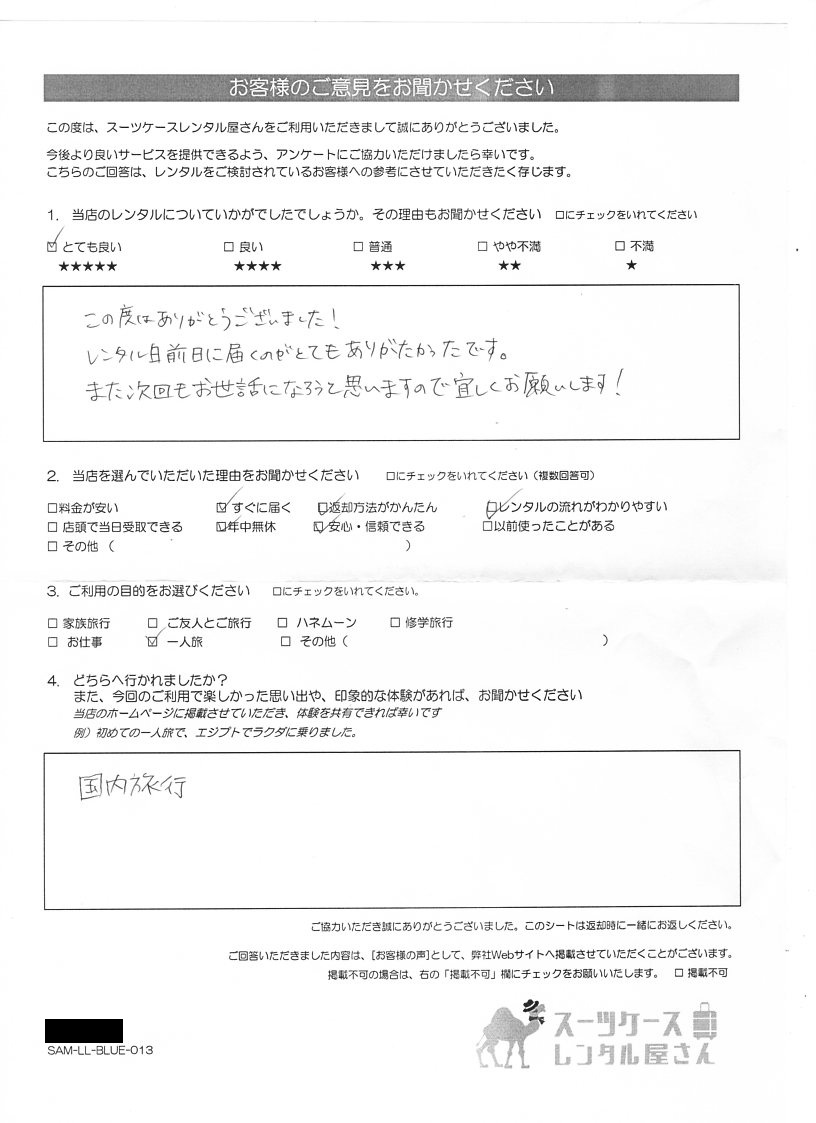 お客様のご意見をお聞かせください
この度は、スーツケースレンタル屋さんをご利用いただきまして誠にありがとうございました。
今後より良いサービスを提供できるよう、アンケートにご協力いただけましたら幸いです。
こちらのご回答は、レンタルをご検討されているお客様への参考にさせていただきたく存じます。
1. 当店のレンタルについていかがでしたでしょうか。その理由もお聞かせください □にチェックをいれてください
☑ とても良い □ 良い □ 普通 □ やや不満 □ 不満
★★★★★ ★★★★ ★★★ ★★ ★
この度はありがとうございました!
レンタル日前日に届くのがとてもありがたかったです。
また次回もお世話になろうと思いますので宜しくお願いします!
2. 当店を選んでいただいた理由をお聞かせください □にチェックをいれてください(複数回答可)
□料金が安い ☑ すぐに届く ☑返却方法がかんたん ☑レンタルの流れがわかりやすい
□ 店頭で当日受取できる ☑年中無休 ☑安心・信頼できる □以前使ったことがある
□ その他 ( )
3. ご利用の目的をお選びください □にチェックをいれてください。
□ 家族旅行 □ ご友人とご旅行 □ ハネムーン □ 修学旅行
□ お仕事 ☑ 一人旅 □ その他 ( )
4. どちらへ行かれましたか?
また、今回のご利用で楽しかった思い出や、印象的な体験があれば、お聞かせください
当店のホームページに掲載させていただき、体験を共有できれば幸いです
例)初めての一人旅で、エジプトでラクダに乗りました。
国内旅行
ご協力いただき誠にありがとうございました。このシートは返却時に一緒にお返しください。
ご回答いただきました内容は、[お客様の声]として、弊社Webサイトへ掲載させていただくことがございます。
掲載不可の場合は、右の「掲載不可」欄にチェックをお願いいたします。 □ 掲載不可
SAM-LL-BLUE-013
スーツケース
レンタル屋さん